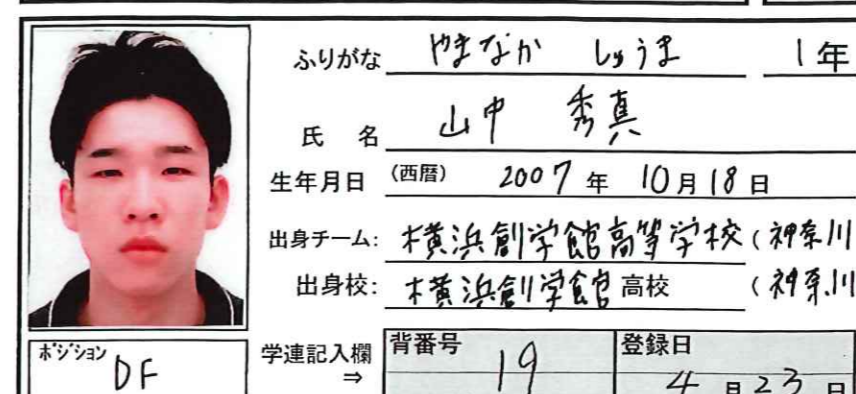 ふりがな やまなか しゅうま 1年
氏 名 山中 秀真
生年月日 (西暦) 2007年 10月18日
出身チーム: 横浜創学館高等学校 (神奈川
出身校: 横浜創学館 高校 (神奈川
ポジション DF
学連記入欄 ⇒
背番号 19
登録日 4月23日